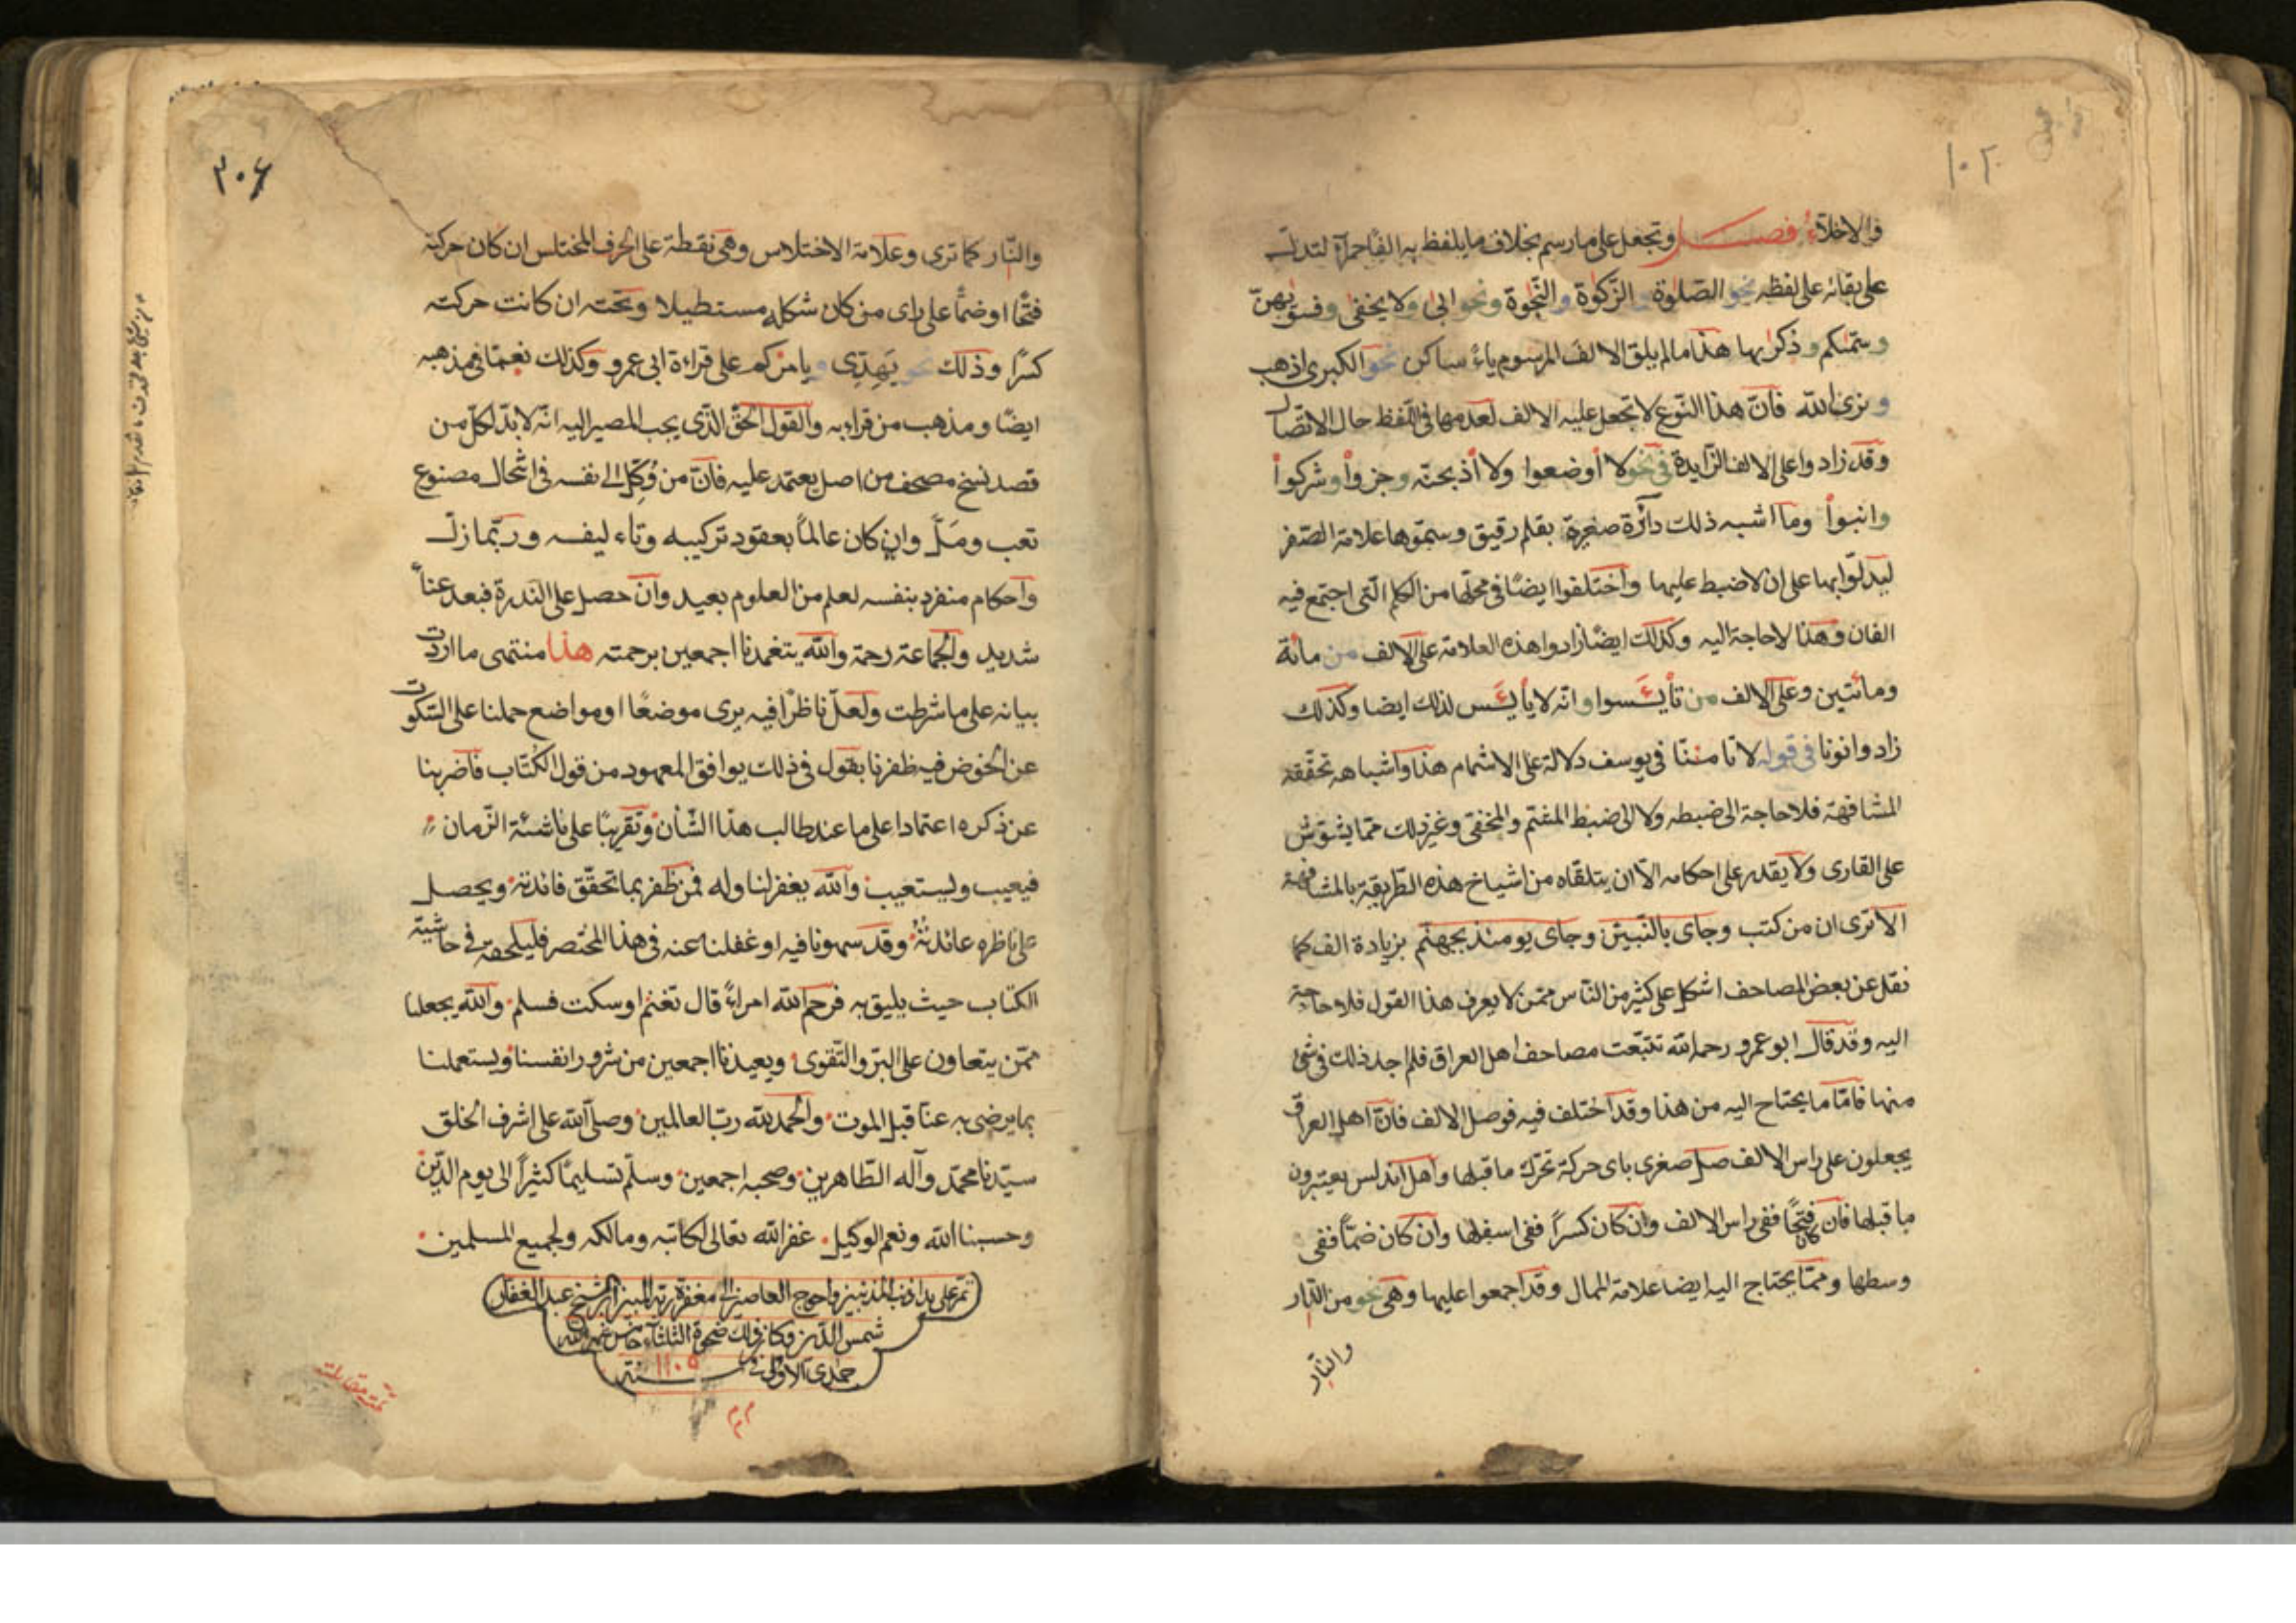 ١٠٢
والاخلّاء فصل وتجعل على ما رسم بخلاف ما يلفظ به الفًا حمرآء لتدلّ
على بقائه على لفظه نحو الصّلوٰة و الزّكوٰة و النّجوٰة ونحو ابىٰ ولا يخفىٰ وفسوّٰيهنّ
وسمّٰيكم وذكرٰىها هذا ما لم يلق الالف المرسوم ياءً ساكن نحو الكبرى اذهب
و نرى الله فانّ هذا النّوع لا تجعل عليه الالف لعدمها فى اللّفظ حال الاتّصال
وقد زادوا على الالف الزّايدة فى نحو لا أوضعوا ولا أذبحنّه وجزوأ وشركوأ
وانبوأ وما اشبه ذلك دآئرة صغيرة بقلم رقيق وسمّوها علامة الصّفر
ليدلّوا بها على ان لا ضبط عليها واختلفوا ايضًا فى محلّها من الكلم الّتى اجتمع فيه
الفان وهذا لا حاجة اليه وكذلك ايضًا زادوا هذه العلامة على الالف من مائة
ومائتين وعلى الالف من تأيئسوا وانّه لا يأيئس لذلك ايضا وكذلك
زادوا نونا فى قوله لا تامننّا فى يوسف دلالة على الاشمام هذا واشباهه تحقّقه
المشافهة فلا حاجة الى ضبطه ولا الى ضبط المفخّم والمخفى وغير ذلك ممّا يشوّش
على القارى ولا يقدر على احكامه الّا ان يتلقاه من اشياخ هذه الطّريقة بالمشافهة
الا ترى ان من كتب وجاى بالنّبيين وجاى يومئذ بجهنّم بزيادة الف كما
نقل عن بعض المصاحف اشكل على كثير من النّاس ممّن لا يعرف هذا القول فلا حاجة
اليه وقد قال ابو عمرو رحمه الله تتبّعت مصاحف اهل العراق فلم اجد ذلك فى شئ
منها فامّا ما يحتاج اليه من هذا وقد اختلف فيه فوصل الالف فانّ اهل العراق
يجعلون على راس الالف صل صغرى باى حركة تحرّك ما قبلها واهل اندلس يعتبرون
ما قبلها فان كان فتحًا ففى راس الالف وان كان كسرًا ففى اسفلها وان كان ضمًّا ففى
وسطها وممّا يحتاج اليه ايضا علامة الممال وقد اجمعوا عليها وهى نحو من الدّار
والنّار
٣٠٦
والنّار كما ترى وعلامة الاختلاس وهى نقطة على الحرف المختلس ان كان حركته
فتحًا او ضمًّا على راى من كان شكله مستطيلا وتحته ان كانت حركته
كسرًا وذلك نحو يَهِدّى و يامركم على قراءة ابى عمرو وكذلك نعمّا فى مذهبه
ايضًا ومذهب من قراء به والقول الحقّ الّذى يجب المصير اليه انّه لا بدّ لكلّ من
قصد نسخ مصحف من اصل يعتمد عليه فانّ من وُكِّل الى نفسه فى اشحال مصنوع
تعب ومَلّ وان كان عالمًا بعقود تركيبه وتاءليفه وربّما زلّ
واحكام منفرد بنفسه لعلم من العلوم بعيد وان حصل على النّدرة فبعد عناءً
شديد والجماعة رحمة والله يتغمدنا اجمعين برحمته هذا منتهى ما اردت
بيانه على ما شرطت ولعلّ ناظرًا فيه يرى موضعًا او مواضع حملنا على السّكوت
عن الخوض فيه ظفرنا بقول فى ذلك يوافق المعهود من قول الكُتّاب فاضربنا
عن ذكره اعتمادا على ما عند طالب هذا الشّأن وتقريبًا على ناشئة الزّمان
فيعيب ويستعيب والله يغفر لنا وله فمن ظفر بما تحقّق فائدته ويحصل
على ناظره عائدته وقد سهونا فيه او غفلنا عنه فى هذا المختصر فليلحقه فى حاشية
الكتاب حيث يليق به فرحم الله امراءً قال تغنم او سكت فسلم والله يجعلنا
ممّن يتعاون على البرّ والتّقوى ويعيذنا اجمعين من شرور انفسنا ويستعملنا
بما يرضى به عنّا قبل الموت والحمد لله ربّ العالمين وصلّى الله على اشرف الخلق
سيّدنا محمّد وآله الطّاهرين وصحبه اجمعين وسلّم تسليمًا كثيرًا الى يوم الدّين
وحسبنا الله ونعم الوكيل غفر الله تعالى لكاتبه ومالكه ولجميع المسلمين
تمّ على يد اذنب المذنبين واحوج العاصين الى مغفرة ربّه المبين الشيخ عبد الغفار
شمس الدّين وكان ذلك ضحوة الثلثاء خامس شهر الله
جمدى الاولى فى سنة ١١٠٥
م م م
تمّت مقابلته